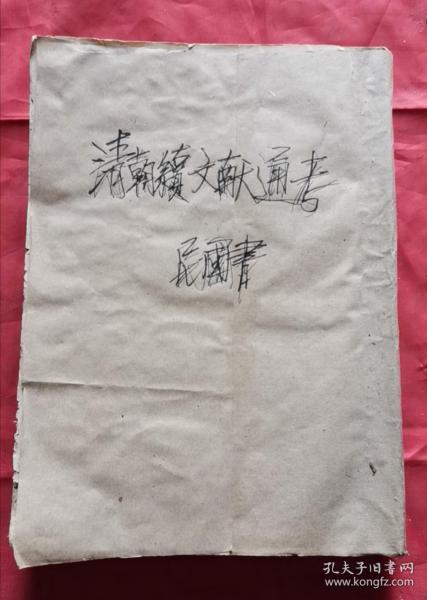 清朝續文献通考
民國書
孔夫子旧书网
www.kongfz.com